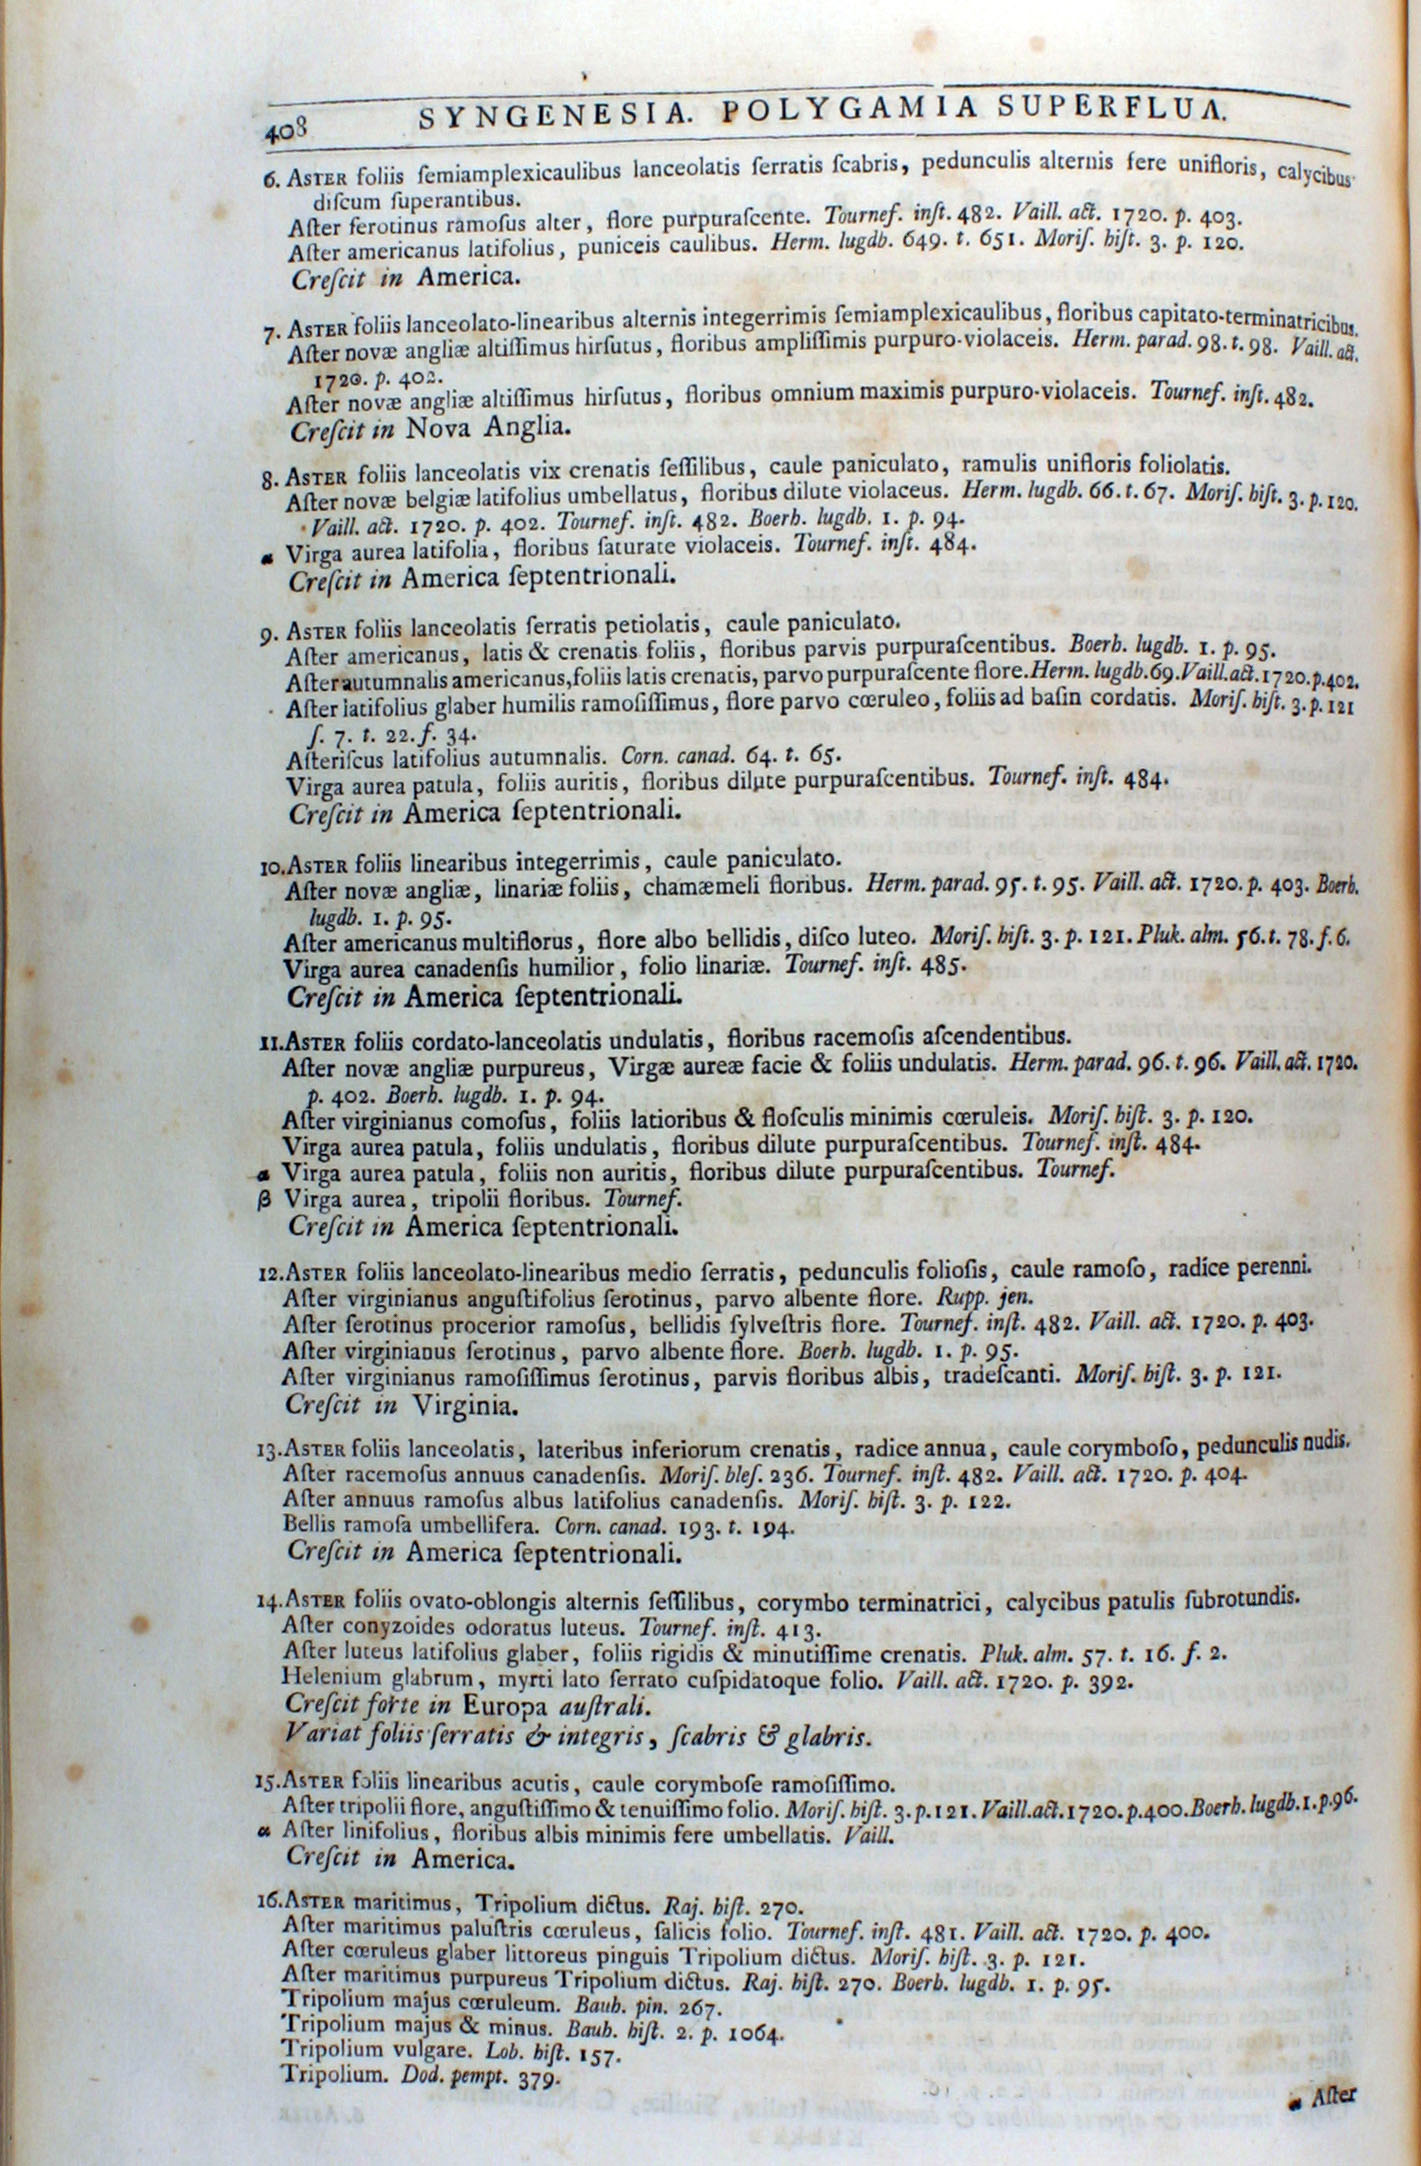 408 SYNGENESIA. POLYGAMIA SUPERFLUA.
6. ASTER foliis ſemiamplexicaulibus lanceolatis ſerratis ſcabris, pedunculis alternis fere unifloris, calycibus
diſcum ſuperantibus.
Aſter ſerotinus ramoſus alter, flore purpuraſcente. Tournef. inſt. 482. Vaill. act. 1720. p. 403.
Aſter americanus latifolius, puniceis caulibus. Herm. lugdb. 649. t. 651. Moriſ. hiſt. 3. p. 120.
Creſcit in America.
7. ASTER foliis lanceolato-linearibus alternis integerrimis ſemiamplexicaulibus, floribus capitato-terminatricibus.
Aſter novæ angliæ altiſſimus hirſutus, floribus ampliſſimis purpuro-violaceis. Herm. parad. 98. t. 98. Vaill. act.
1720. p. 402.
Aſter novæ angliæ altiſſimus hirſutus, floribus omnium maximis purpuro-violaceis. Tournef. inſt. 482.
Creſcit in Nova Anglia.
8. ASTER foliis lanceolatis vix crenatis ſeſſilibus, caule paniculato, ramulis unifloris foliolatis.
Aſter novæ belgiæ latifolius umbellatus, floribus dilute violaceus. Herm. lugdb. 66. t. 67. Moriſ. hiſt. 3. p. 120.
Vaill. act. 1720. p. 402. Tournef. inſt. 482. Boerh. lugdb. 1. p. 94.
α Virga aurea latifolia, floribus ſaturate violaceis. Tournef. inſt. 484.
Creſcit in America ſeptentrionali.
9. ASTER foliis lanceolatis ſerratis petiolatis, caule paniculato.
Aſter americanus, latis & crenatis foliis, floribus parvis purpuraſcentibus. Boerh. lugdb. 1. p. 95.
Aſter autumnalis americanus, foliis latis crenatis, parvo purpuraſcente flore. Herm. lugdb. 69. Vaill. act. 1720. p. 402.
Aſter latifolius glaber humilis ramoſiſſimus, flore parvo cœruleo, foliis ad baſin cordatis. Moriſ. hiſt. 3. p. 121
ſ. 7. t. 22. f. 34.
Aſteriſcus latifolius autumnalis. Corn. canad. 64. t. 65.
Virga aurea patula, foliis auritis, floribus dilute purpuraſcentibus. Tournef. inſt. 484.
Creſcit in America ſeptentrionali.
10. ASTER foliis linearibus integerrimis, caule paniculato.
Aſter novæ angliæ, linariæ foliis, chamæmeli floribus. Herm. parad. 95. t. 95. Vaill. act. 1720. p. 403. Boerh.
lugdb. 1. p. 95.
Aſter americanus multiflorus, flore albo bellidis, diſco luteo. Moriſ. hiſt. 3. p. 121. Pluk. alm. 56. t. 78. f. 6.
Virga aurea canadenſis humilior, folio linariæ. Tournef. inſt. 485.
Creſcit in America ſeptentrionali.
11. ASTER foliis cordato-lanceolatis undulatis, floribus racemoſis aſcendentibus.
Aſter novæ angliæ purpureus, Virgæ aureæ facie & foliis undulatis. Herm. parad. 96. t. 96. Vaill. act. 1720.
p. 402. Boerh. lugdb. 1. p. 94.
Aſter virginianus comoſus, foliis latioribus & floſculis minimis cœruleis. Moriſ. hiſt. 3. p. 120.
Virga aurea patula, foliis undulatis, floribus dilute purpuraſcentibus. Tournef. inſt. 484.
α Virga aurea patula, foliis non auritis, floribus dilute purpuraſcentibus. Tournef.
β Virga aurea, tripolii floribus. Tournef.
Creſcit in America ſeptentrionali.
12. ASTER foliis lanceolato-linearibus medio ſerratis, pedunculis folioſis, caule ramoſo, radice perenni.
Aſter virginianus anguſtifolius ſerotinus, parvo albente flore. Rupp. jen.
Aſter ſerotinus procerior ramoſus, bellidis ſylveſtris flore. Tournef. inſt. 482. Vaill. act. 1720. p. 403.
Aſter virginianus ſerotinus, parvo albente flore. Boerh. lugdb. 1. p. 95.
Aſter virginianus ramoſiſſimus ſerotinus, parvis floribus albis, tradeſcanti. Moriſ. hiſt. 3. p. 121.
Creſcit in Virginia.
13. ASTER foliis lanceolatis, lateribus inferiorum crenatis, radice annua, caule corymboſo, pedunculis nudis.
Aſter racemoſus annuus canadenſis. Moriſ. bleſ. 236. Tournef. inſt. 482. Vaill. act. 1720. p. 404.
Aſter annuus ramoſus albus latifolius canadenſis. Moriſ. hiſt. 3. p. 122.
Bellis ramoſa umbellifera. Corn. canad. 193. t. 194.
Creſcit in America ſeptentrionali.
14. ASTER foliis ovato-oblongis alternis ſeſſilibus, corymbo terminatrici, calycibus patulis ſubrotundis.
Aſter conyzoides odoratus luteus. Tournef. inſt. 413.
Aſter luteus latifolius glaber, foliis rigidis & minutiſſime crenatis. Pluk. alm. 57. t. 16. f. 2.
Helenium glabrum, myrti lato ſerrato cuſpidatoque folio. Vaill. act. 1720. p. 392.
Creſcit forte in Europa auſtrali.
Variat foliis ſerratis & integris, ſcabris & glabris.
15. ASTER foliis linearibus acutis, caule corymboſe ramoſiſſimo.
Aſter tripolii flore, anguſtiſſimo & tenuiſſimo folio. Moriſ. hiſt. 3. p. 121. Vaill. act. 1720. p. 400. Boerh. lugdb. 1. p. 96.
α Aſter linifolius, floribus albis minimis fere umbellatis. Vaill.
Creſcit in America.
16. ASTER maritimus, Tripolium dictus. Raj. hiſt. 270.
Aſter maritimus paluſtris cœruleus, ſalicis folio. Tournef. inſt. 481. Vaill. act. 1720. p. 400.
Aſter cœruleus glaber littoreus pinguis Tripolium dictus. Moriſ. hiſt. 3. p. 121.
Aſter maritimus purpureus Tripolium dictus. Raj. hiſt. 270. Boerh. lugdb. 1. p. 95.
Tripolium majus cœruleum. Bauh. pin. 267.
Tripolium majus & minus. Bauh. hiſt. 2. p. 1064.
Tripolium vulgare. Lob. hiſt. 157.
Tripolium. Dod. pempt. 379.
α Aſter